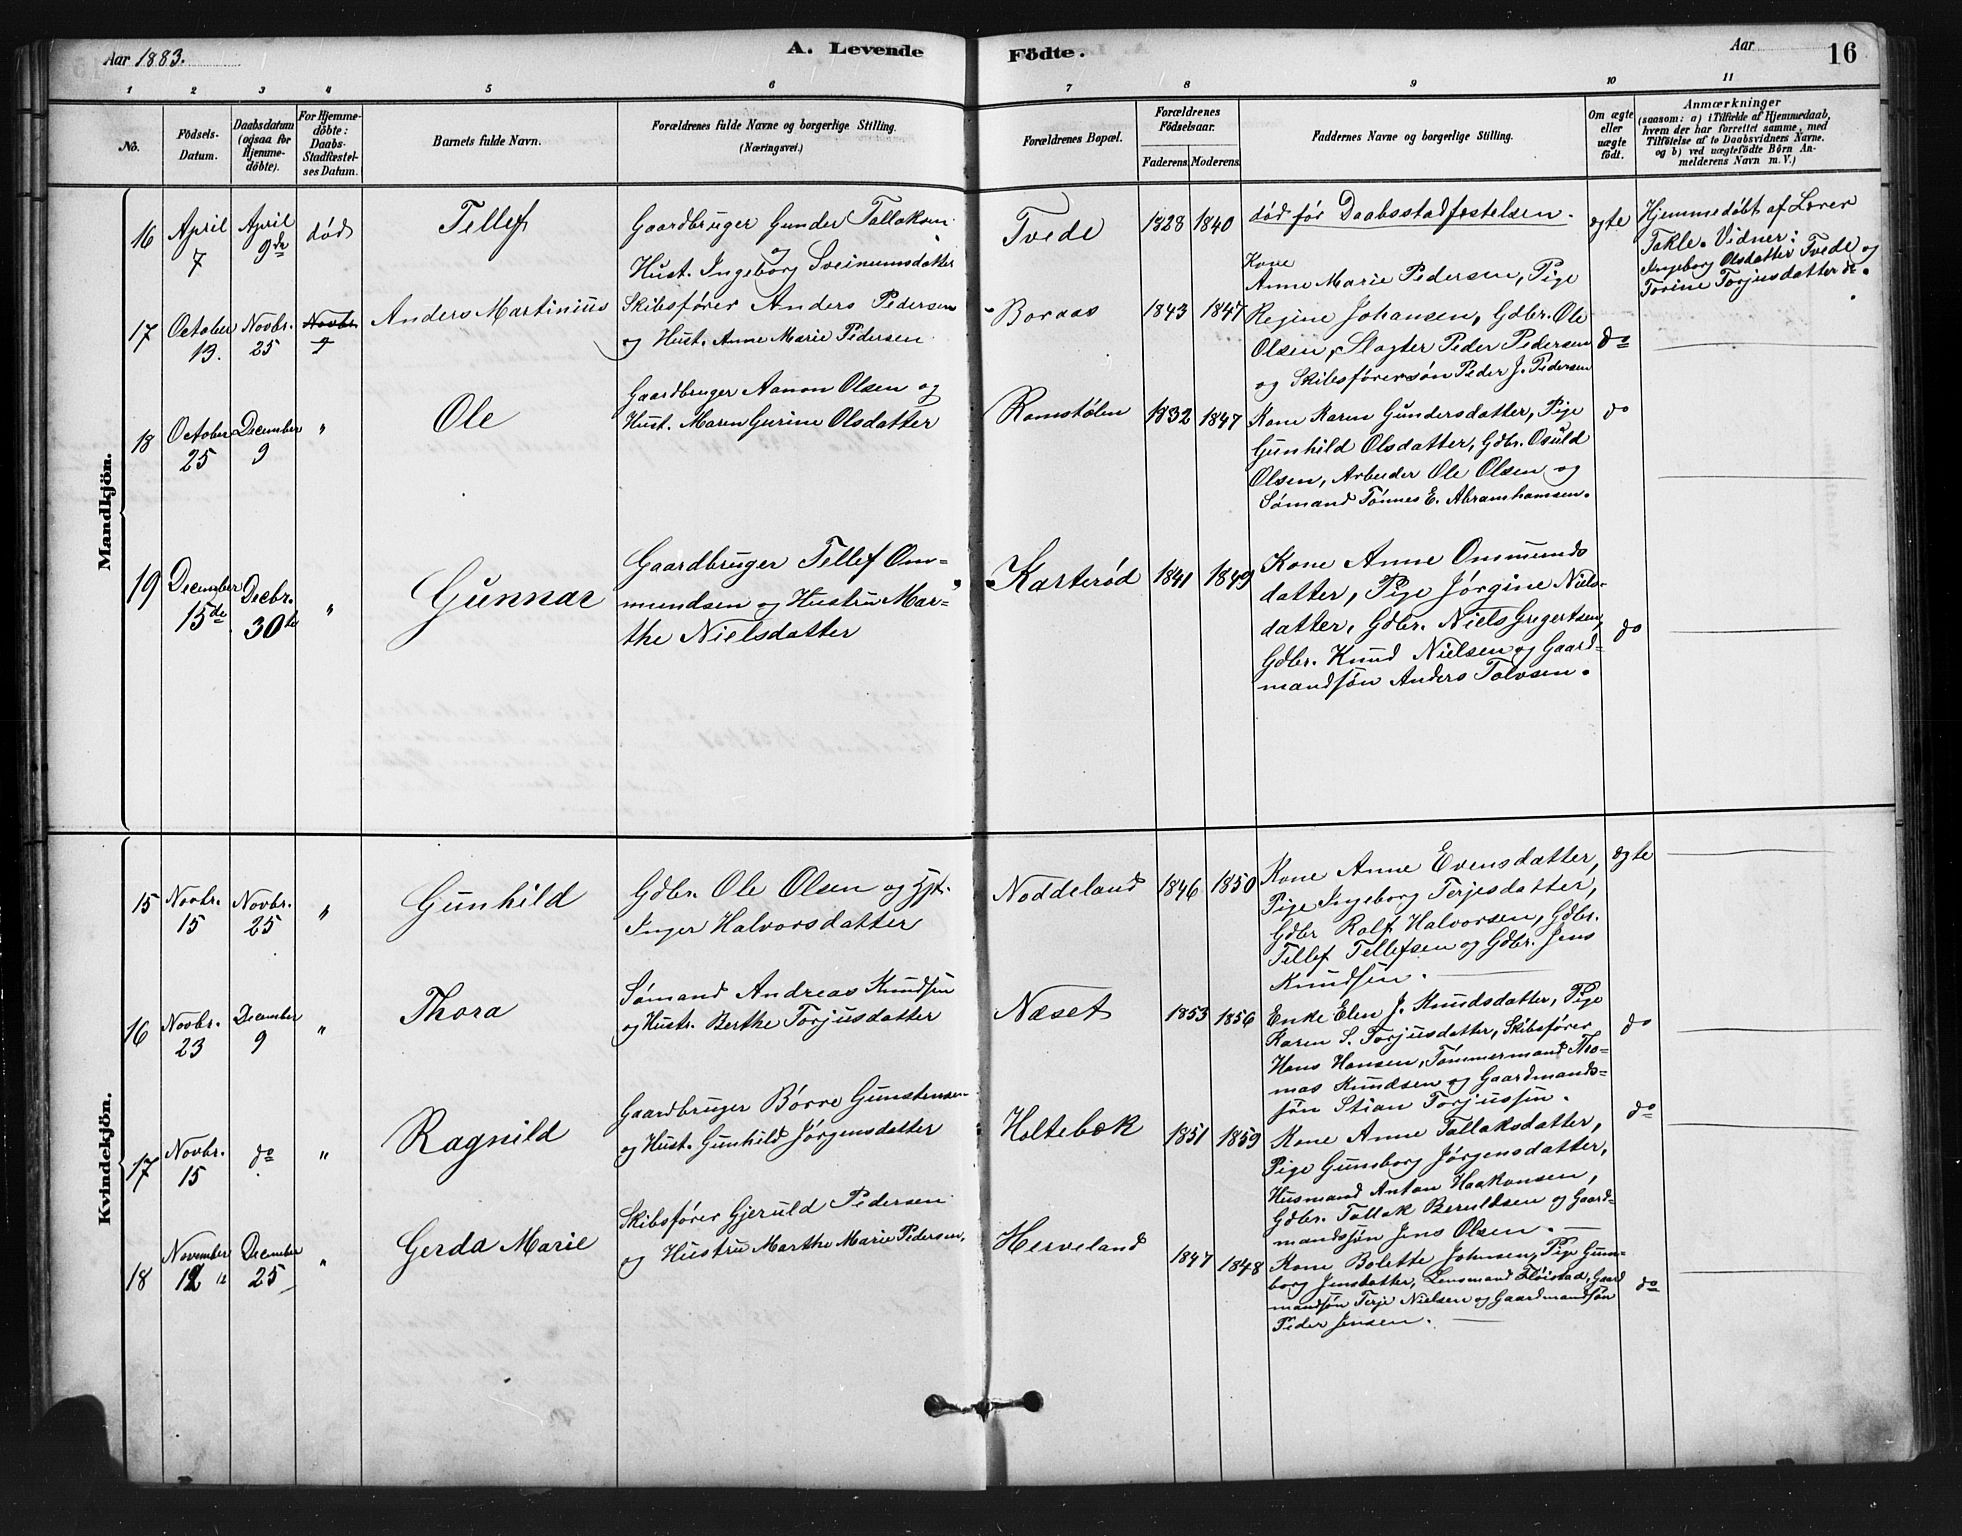 Aar 1883.
A. Levende
Födte.
Aar
16
1 2 3 4 5 6 7 8 9 10 11
No.
Födsels-
Datum.
Daabsdatum
(ogsaa for
Hjemme-
döbte).
For Hjemme-
döbte:
Daabs-
Stadfæstel-
ses Datum.
Barnets fulde Navn.
Forældrenes fulde Navne og borgerlige Stilling.
(Næringsvei.)
Forældrenes Bopæl.
Forældrenes
Födselsaar.
Faderens. Moderens.
Faddernes Navne og borgerlige Stilling.
Om ægte
eller
uægte
født.
Anmærkninger
(saasom: a) i Tilfælde af Hjemmedaab,
hvem der har forrettet samme, med
Tilföielse af to Daabsvidners Navne.
og b) ved uægtefödte Börn An-
melderens Navn m. V.)
Mandkjön.
16
April
7
April
9de
død
Tellef
Gaardbruger Gunder Tallaksen
og
Hust. Ingeborg Sveinumsdatter
Tvede
1828 1840
død før Daabsstadfæstelsen.
ægte
Hjemmedøbt af Lærer
Takle. Vidner:
Ingeborg Olsdatter Tvede og
Torine Torjusdatter do.
17
October
13.
Novbr.
25
Novbr
Anders Martinius
Skibsfører Anders Pedersen
og Hust. Anne Marie Pedersen
Boraas
1843 1847
Kone
Anne Marie Pedersen, Pige
Regine Johansen, Gdbr. Ole
Olsen, Slagter Peder Pedersen
og Skibsførersøn Peder J. Pedersen
do
18
October
25
December
9
"
Ole
Gaardbruger Aanon Olsen og
Hust. Maren Gurine Olsdatter
Ramstølen
1832 1847
Kone Karen Gundersdatter, Pige
Gunhild Olsdatter, Gdbr. Osuld
Olsen, Arbeider Ole Olsen og
Sømand Tønnes E. Abramhamsen.
do
19
December
15de
Decbr.
30te
"
Gunnar
Gaardbruger Tellef Om-
mundsen og Hustru Mar-
the Nielsdatter
Karterød
1841 1849
Kone Anne Ommunds
datter, Pige Jørgine Niels-
datter, Gdbr. Niels Gregertsen,
Gdbr. Knud Nielsen og Gaard-
mandsøn Anders Tolvsen.
do
Kvindekjön.
15
Novbr.
15
Novbr.
25
"
Gunhild
Gdbr. Ole Olsen og Hst.
Inger Halvorsdatter
Noddeland
1846 1850
Kone Anne Evensdatter,
Pige Ingeborg Terjesdatter,
Gdbr Rolf Halvorsen, Gdbr.
Tellef Tellefsen og Gdbr. Jens
Knudsen.
ægte
16
Novbr.
23
December
9
"
Thora
Sømand Andreas Knudsen
og Hustr. Berthe Torjusdatter
Næset
1853 1856
Enke Elen J. Knudsdatter, Pige
Karen S. Torjusdatter, Skibsfører
Hans Hansen, Tømmermand Tho-
mas Knudsen og Gaardmands-
søn Stian Torjussen.
do
17
Novbr.
15
do
"
Ragnild
Gaardbruger Børre Gunstensen
og Hust. Gunhild Jørgensdatter
Holtebæk
1851 1859
Kone Anne Tallaksdatter,
Pige Gunborg Jørgensdatter,
Husmand Anton Haakonsen,
Gdbr. Tallak Beruldsen og Gaard-
mandssøn Jens Olsen.
do
18
November
12 12
December
25
"
Gerda Marie
Skibsfører Gjeruld Pedersen
og Hustru Marthe Marie Pedersen,
Herveland
1847 1848
Kone Bolette Johnsen, Pige Gun-
borg Jensdatter, Lensmand Fløistad, Gaard
mandsøn Terje Nielsen og Gaardmandsøn
Peder Jensen.
do